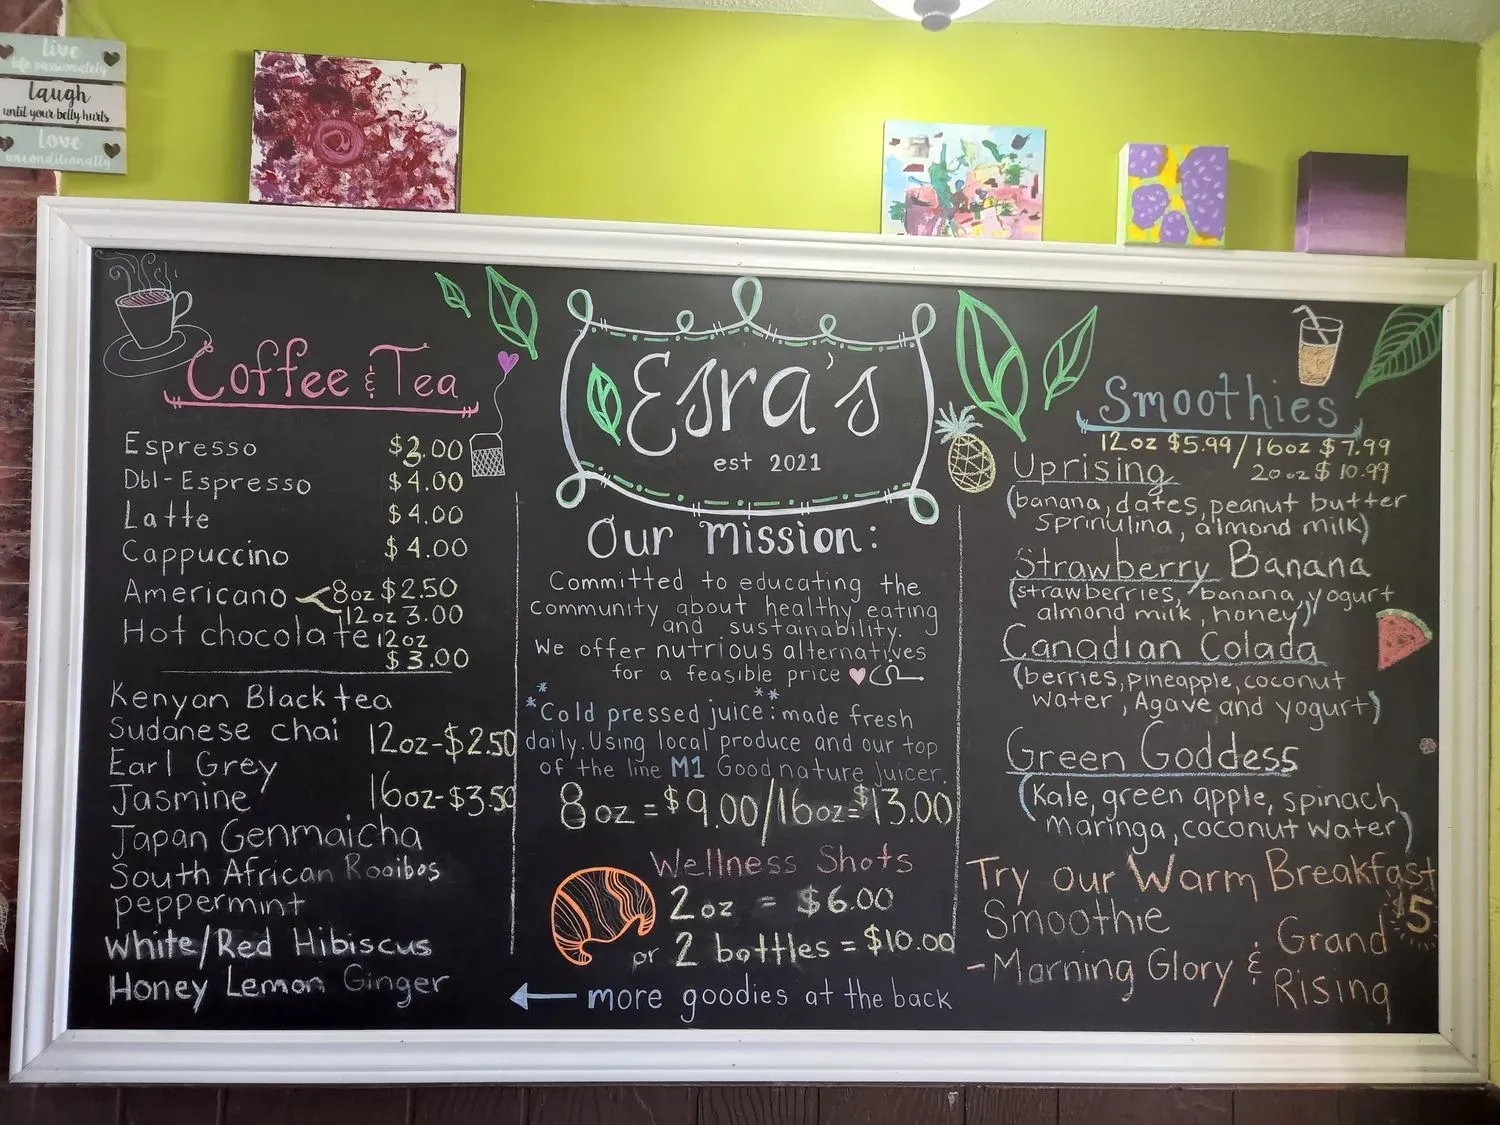 live
life passionately
laugh
until your belly hurts
love
unconditionally
Coffee & Tea
Espresso $2.00
Dbl-Espresso $4.00
Latte $4.00
Cappuccino $4.00
Americano 8oz $2.50
12oz 3.00
Hot chocolate 12oz
$3.00
Kenyan Black tea
Sudanese chai 12oz-$2.50
Earl Grey
Jasmine 16oz-$3.50
Japan Genmaicha
South African Rooibos
peppermint
White/Red Hibiscus
Honey Lemon Ginger
Esra's
est 2021
Our Mission:
Committed to educating the
community about healthy eating
and sustainability.
We offer nutrious alternatives
for a feasible price
*Cold pressed juice:** made fresh
daily. Using local produce and our top
of the line M1 Goodnature Juicer.
8oz = $9.00/16oz = $13.00
Wellness Shots
2oz = $6.00
or 2 bottles = $10.00
more goodies at the back
Smoothies
12oz $5.99/16oz $7.99
20oz $10.99
Uprising
(banana, dates, peanut butter
Sprinulina, almond milk)
Strawberry Banana
(strawberries, banana, yogurt
almond milk, honey)
Canadian Colada
(berries, pineapple, coconut
water, Agave and yogurt)
Green Goddess
(Kale, green apple, spinach,
maringa, coconut water)
Try our Warm Breakfast
Smoothie $5
-Morning Glory & Grand
Rising